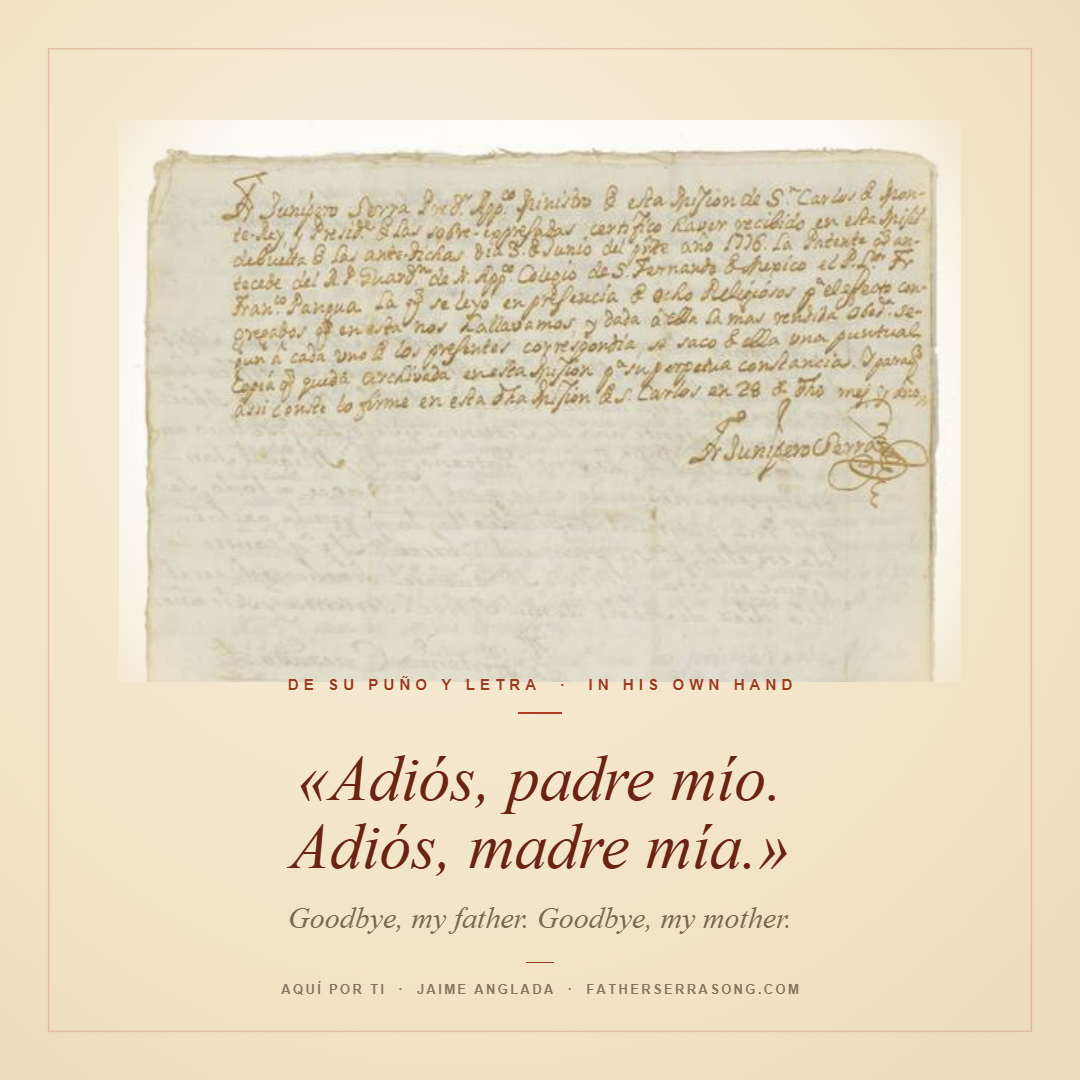 Fr Junipero Serra Pred.r App.co Ministro de esta Mision de S.n Carlos de Mon-
te-Rey y Presid.te de las sobre-expresadas certifico haver recibido en esta Mision
debuelta de las ante-dichas dia 3. de Junio del pnte ano 1776. La Patente q an-
tecede del R. P. Guard.n de N. App.co Colegio de S. Fernando de Mexico el P. Fr
Fran.co Pangua. La q se leyo en presencia de ocho Religiosos p.a el efecto con-
gregados q en esta nos hallavamos y dada à ella la mas rendida obed.a se-
gun à cada uno de los presentes correspondia, se saco de ella una puntual
Copia q queda archivada en esta Mision p.a su perpetua constancia. Y para q
assi conste lo firme en esta dha Mision de S. Carlos en 28 de dho mes y año.
Fr Junipero Serra
DE SU PUÑO Y LETRA · IN HIS OWN HAND
«Adiós, padre mío.
Adiós, madre mía.»
Goodbye, my father. Goodbye, my mother.
AQUÍ POR TI · JAIME ANGLADA · FATHERSERRASONG.COM